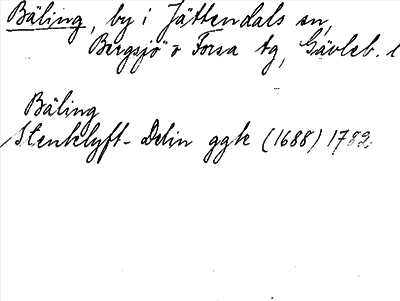 Bäling, by i Jättendals sn,
Bergsjö o Forsa tg, Gävleb. l
Bäling
Stenklyft- Delin ggk (1688) 1782